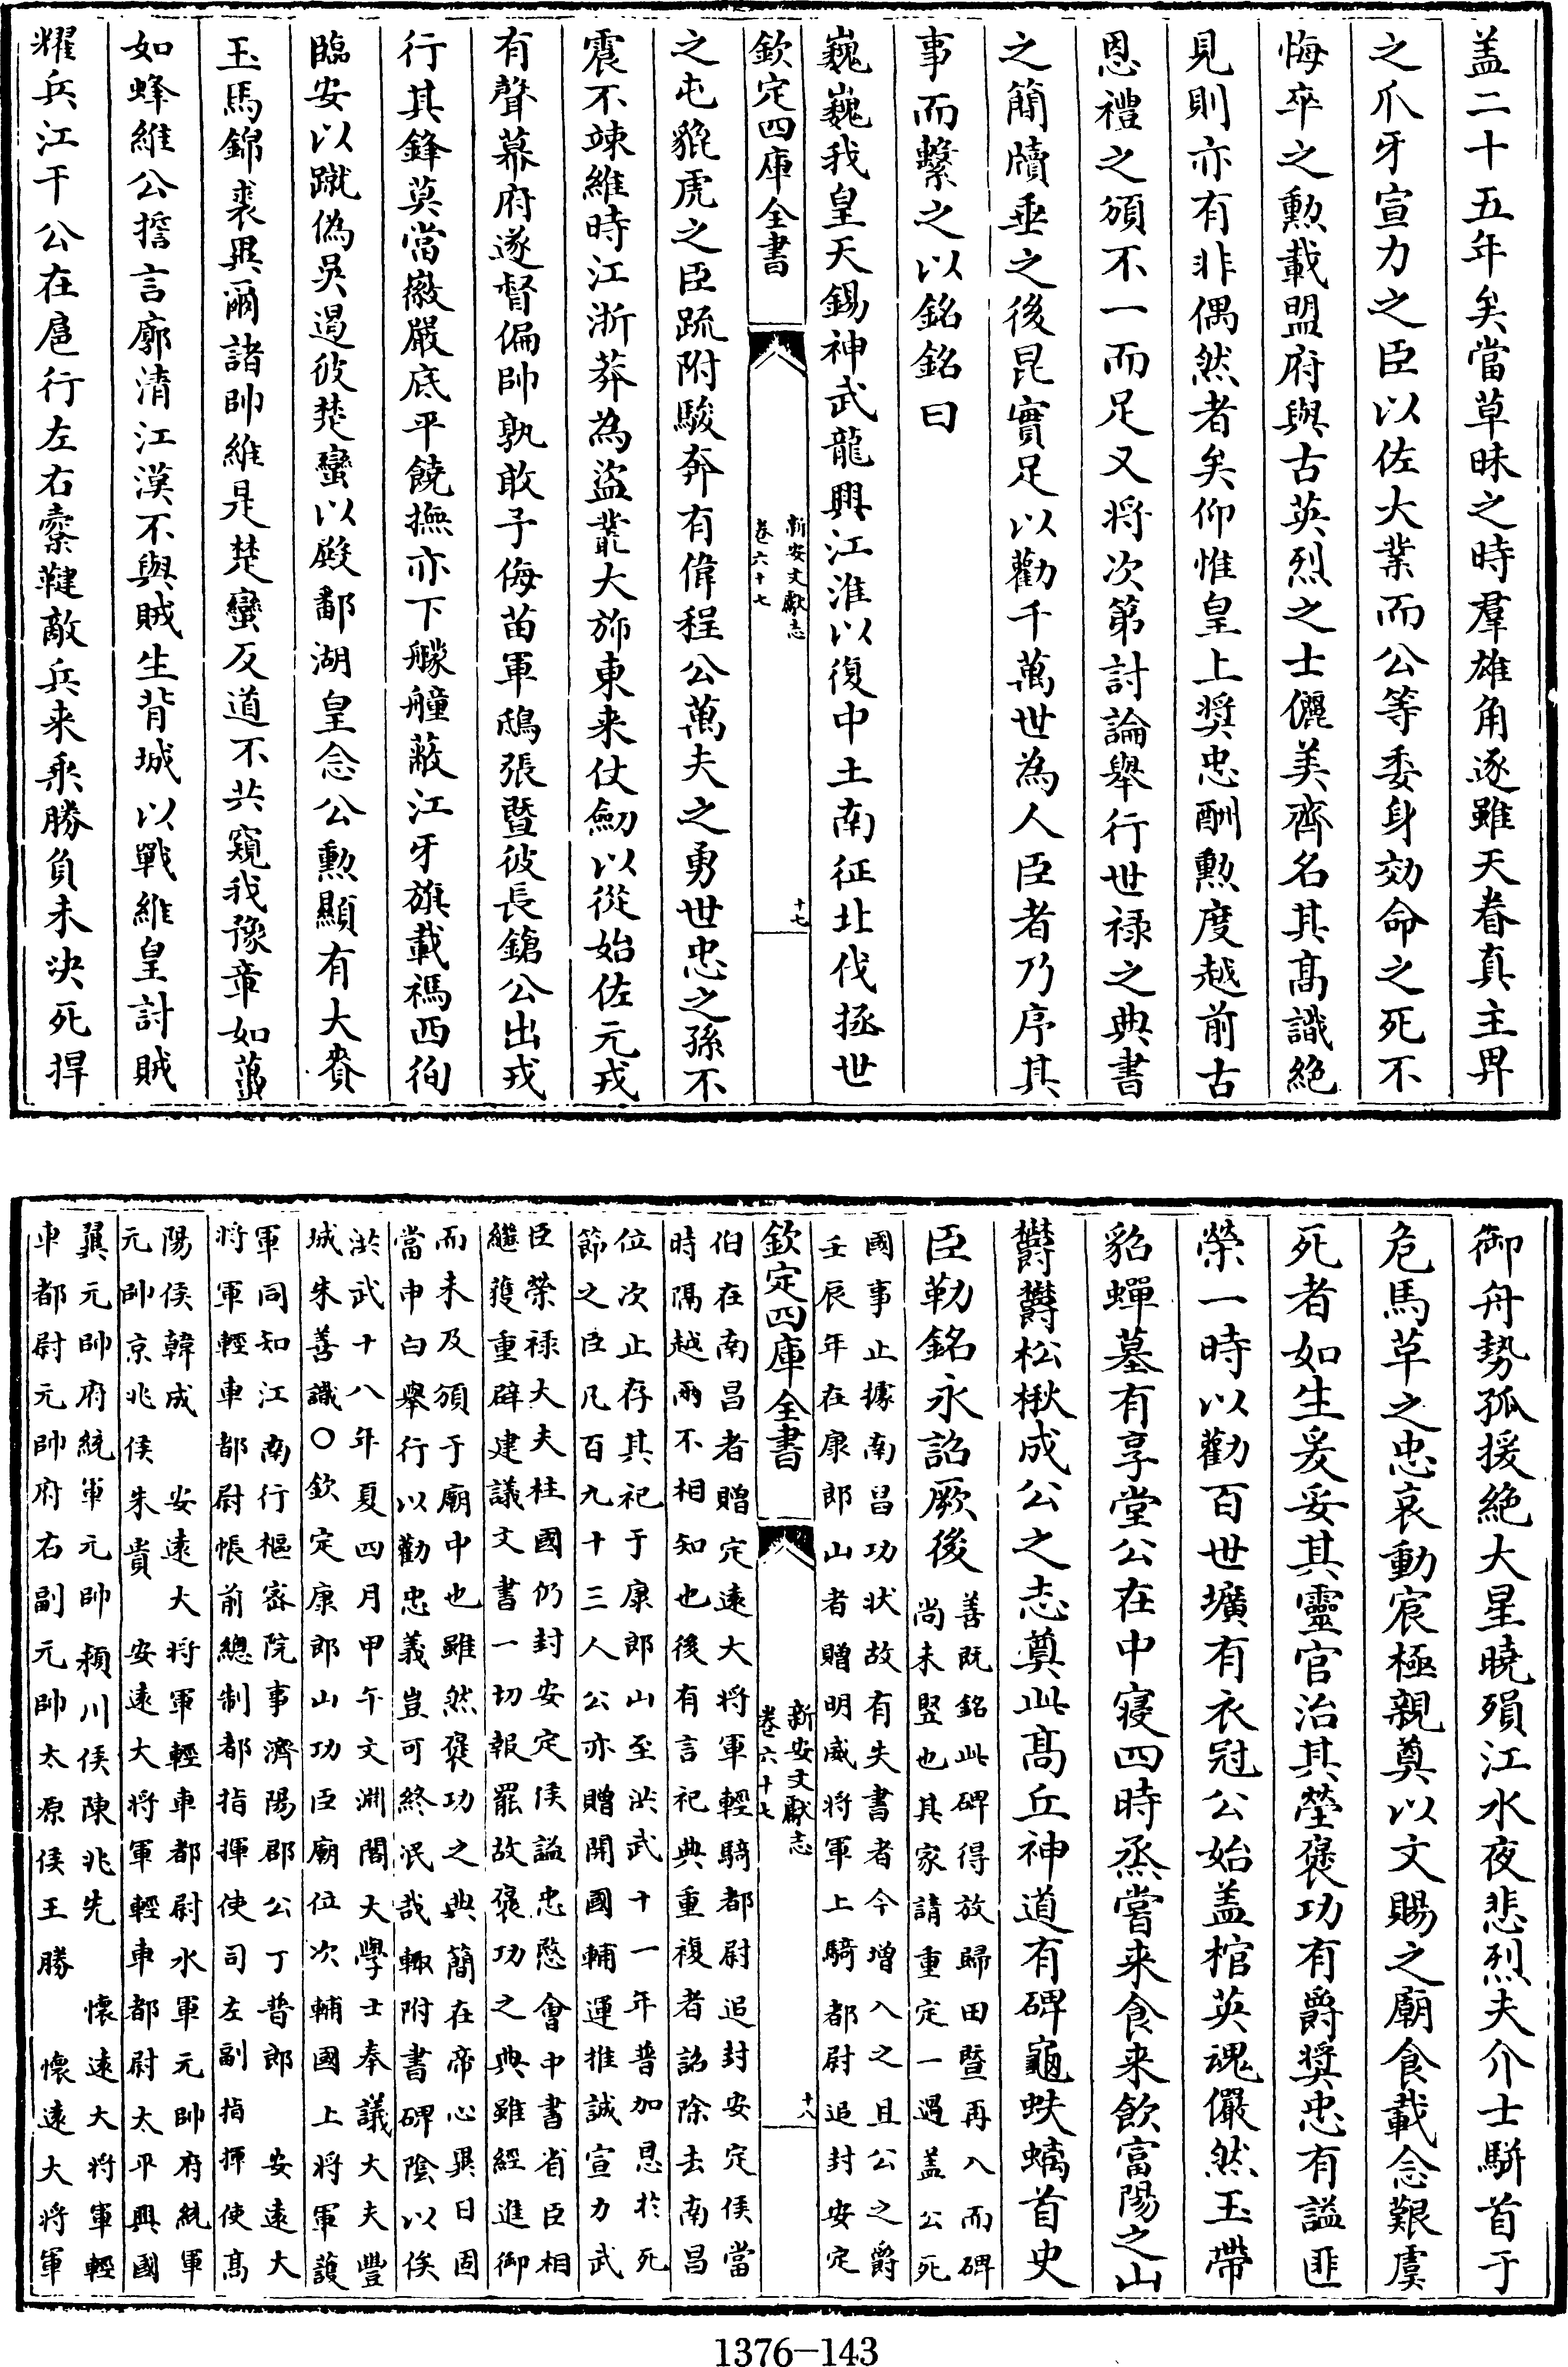 盖二十五年矣當草昧之時羣雄角逐雖天眷真主畀
之爪牙宣力之臣以佐大業而公等委身効命之死不
悔卒之勲載盟府與古英烈之士儷美齊名其髙識絶
見則亦有非偶然者矣仰惟皇上奨忠酬勲度越前古
恩禮之頒不一而足又将次第討論舉行世禄之典書
之簡牘垂之後昆實足以勸千萬世為人臣者乃序其
事而繫之以銘銘曰
巍巍我皇天錫神武龍興江淮以復中土南征北伐拯世
欽定四庫全書
新安文獻志
卷六十七
十七
之屯貔虎之臣疏附駿奔有偉程公萬夫之勇世忠之孫不
震不竦維時江浙莽為盗藂大斾東来仗劒以從始佐元戎
有聲幕府遂督偏帥孰敢予侮苗軍鴟張暨彼長鎗公出戎
行其鋒莫當徽嚴底平饒撫亦下艨艟蔽江牙旗載禡西徇
臨安以蹴偽吳遏彼楚蠻以殿鄱湖皇念公勲顯有大賚
玉馬錦裘異爾諸帥維是楚蠻反道不共窺我豫章如蠆
如蜂維公擔言廓清江漢不與賊生背城以戰維皇討賊
耀兵江干公在扈行左右櫜鞬敵兵来乘勝負未决死捍
御舟勢孤援絶大星曉殞江水夜悲烈夫介士駢首于
危馬草之忠哀動宸極親奠以文賜之廟食載念艱虞
死者如生爰妥其靈官治其塋褒功有爵奨忠有諡匪
榮一時以勸百世壙有衣冠公始盖棺英魂儼然玉帶
貂蟬墓有享堂公在中寢四時烝嘗来食来飲富陽之山
鬱鬱松楸成公之志奠此髙丘神道有碑龜蚨螭首史
臣勒銘永詔厥後
善既銘此碑得放歸田暨再入而碑
尚未竪也其家請重定一過盖公死
國事止據南昌功状故有失書者今増入之且公之爵
壬辰年在康郎山者贈明威将軍上騎都尉追封安定
欽定四庫全書
新安文獻志
卷六十七
十八
伯在南昌者贈定逺大将軍輕騎都尉追封安定侯當
時隔越兩不相知也後有言祀典重複者詔除去南昌
位次止存其祀于康郎山至洪武十一年普加恩於死
節之臣凡百九十三人公亦贈開國輔運推誠宣力武
臣榮禄大夫柱國仍封安定侯諡忠愍會中書省臣相
繼獲重辟建議文書一切報罷故褒功之典雖經進御
而未及頒于廟中也雖然褒功之典簡在帝心異日固
當申白舉行以勸忠義豈可終泯哉輙附書碑陰以俟
洪武十八年夏四月甲午文淵閣大學士奉議大夫豐
城朱善識○欽定康郎山功臣廟位次輔國上将軍護
軍同知江南行樞宻院事濟陽郡公丁普郎　安逺大
将軍輕車都尉帳前總制都指揮使司左副指揮使髙
陽侯韓成　安逺大将軍輕車都尉水軍元帥府統軍
元帥京兆侯朱貴　安逺大将軍輕車都尉太平興國
翼元帥府統軍元帥頴川侯陳兆先　懐逺大将軍輕
車都尉元帥府右副元帥太原侯王勝　懐逺大将軍
1376—143